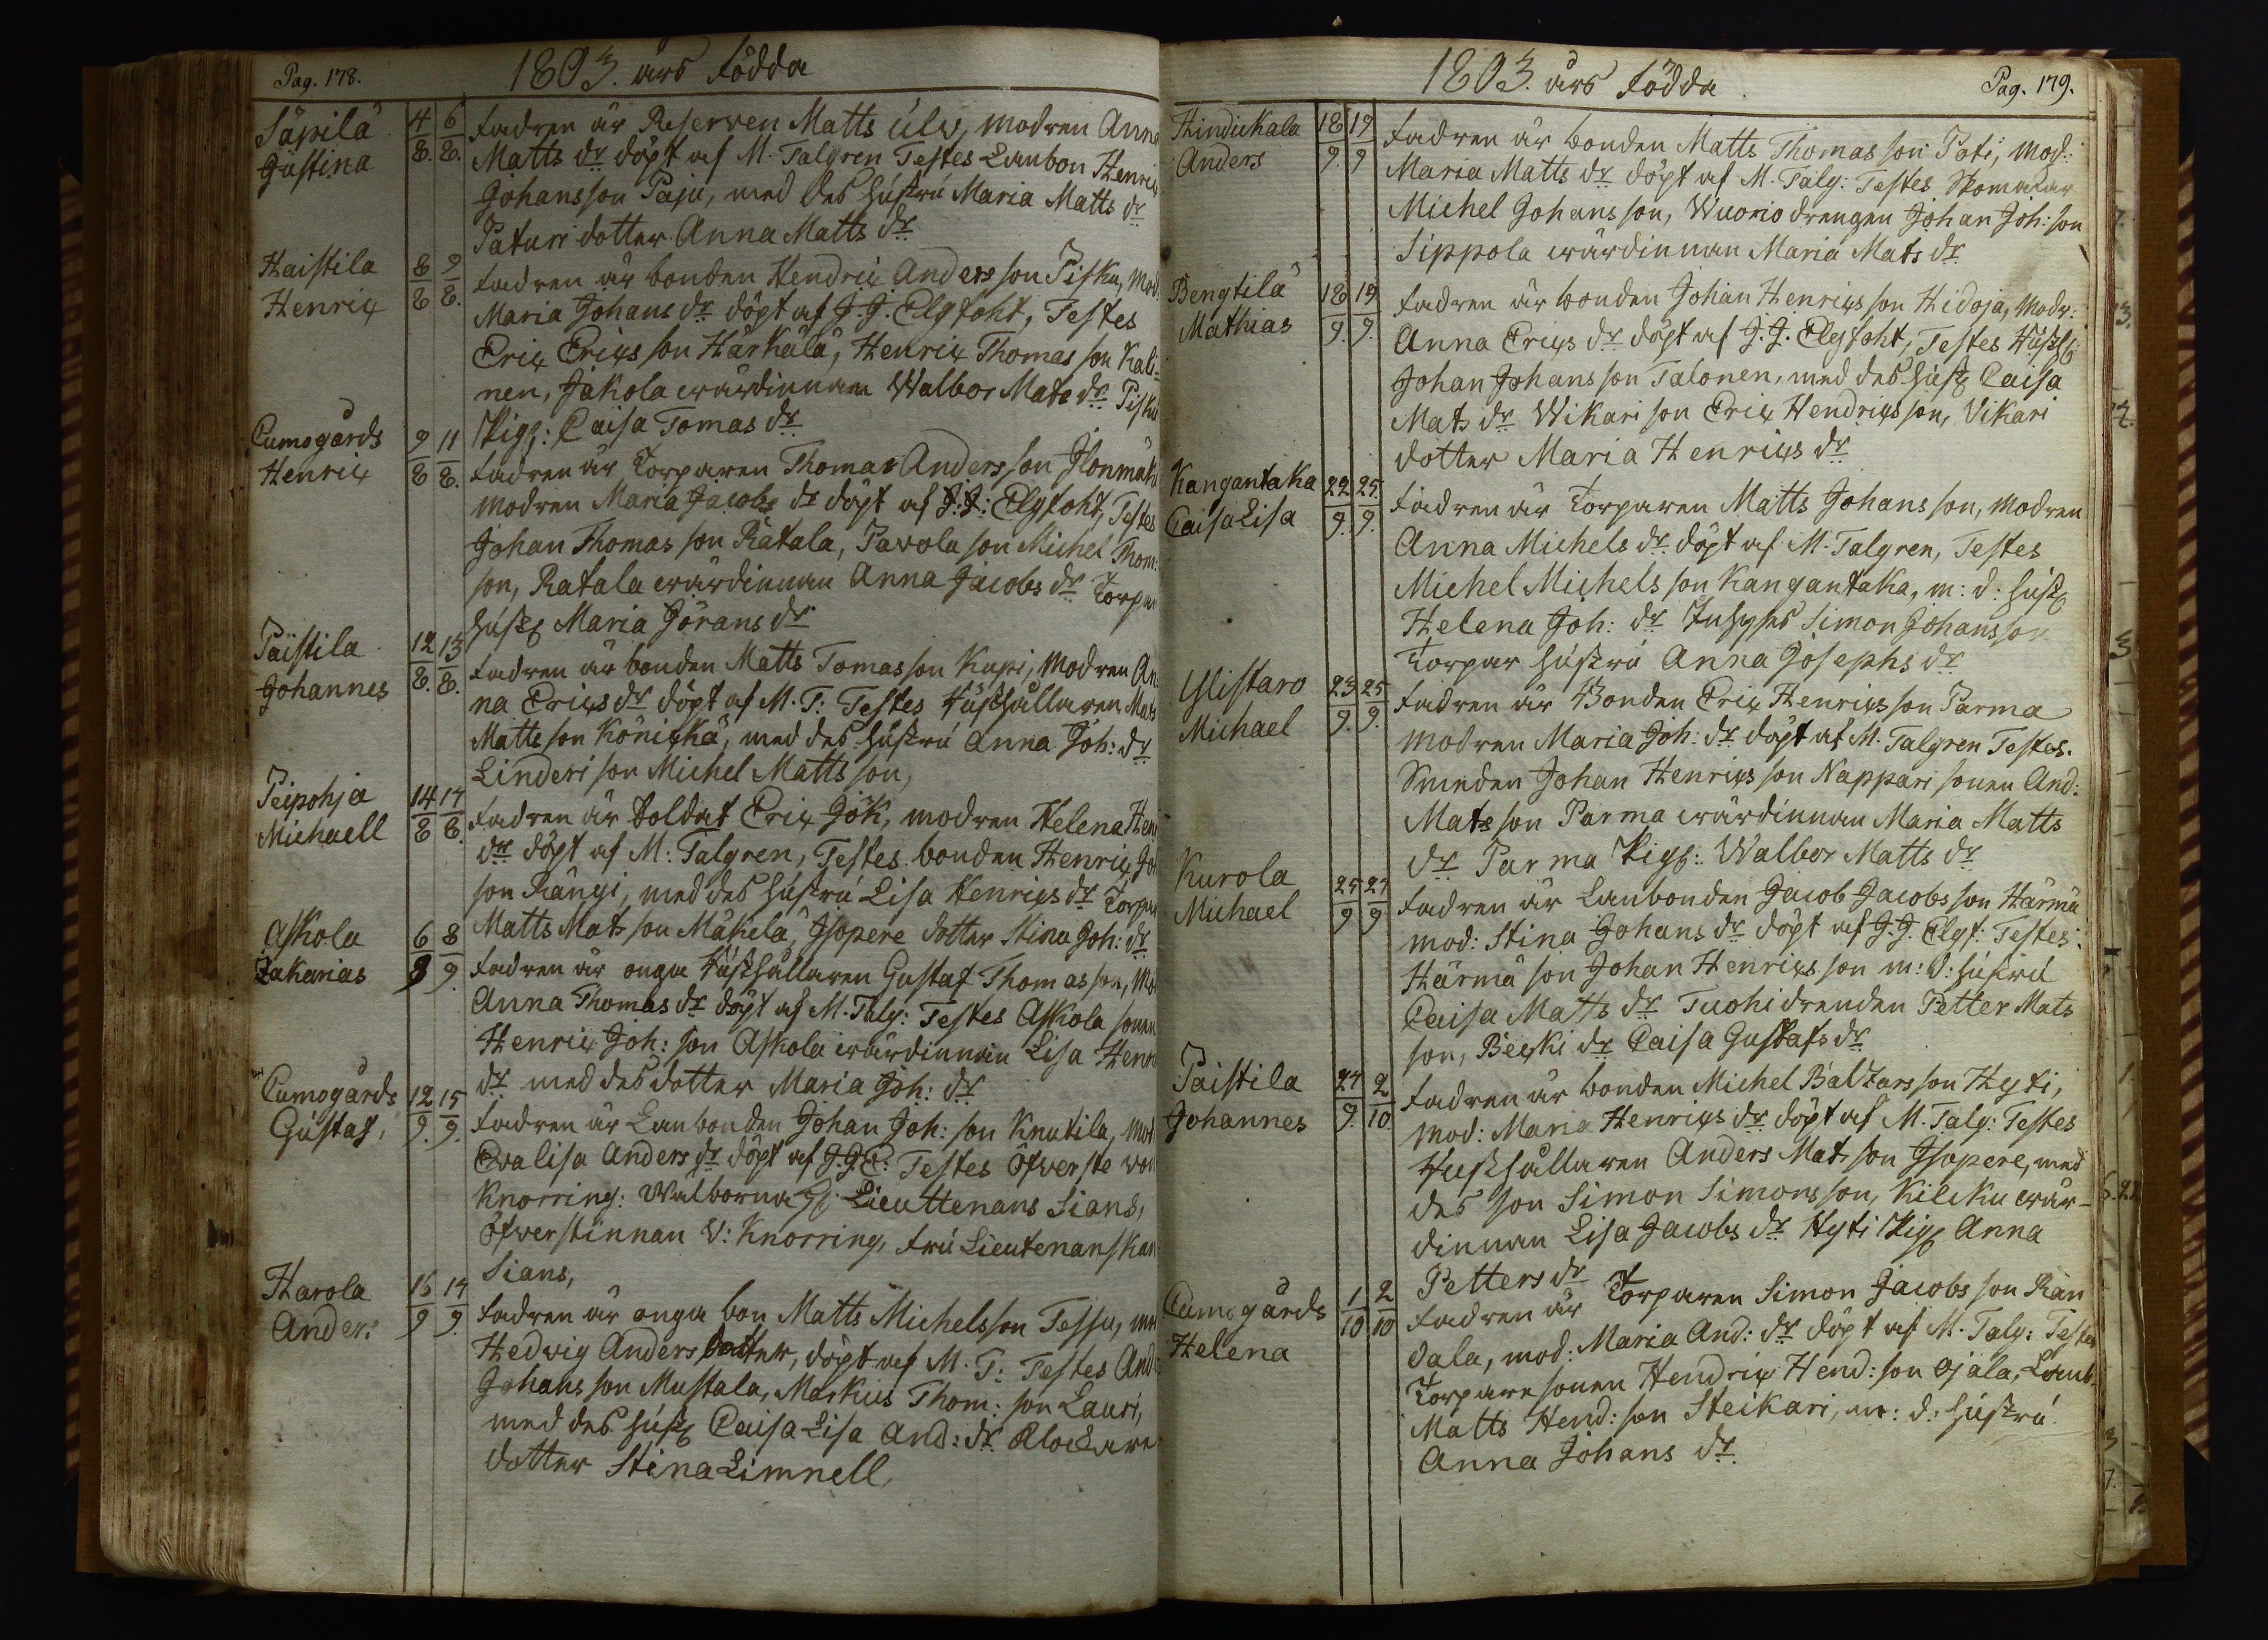 Pag. 178.
1803. års födda
Säpilä 4/8. 6/8. fadren är Reserven Matts Ulv, modren Anna
Gustina Matts dr döpt af M. Talgren Testes Lanbon Henrix
Johansson Paju, med des hustru Maria Matts dr
Paturi dotter Anna Matts dr
Haistila 8/8 9/8. fadren är bonden Hendrix Andersson Pisku, mod.
Henrix Maria Johans dr döpt af J. J. Elgfoht, Testes
Erix Erixs son Härkälä, Henrix Thomas son Kali-
nen, Jakola wärdinnan Walbor Mats dr Pisku
Pig: Caisa Tomas dr
Cumogårds 9/8 11/8. fadren är Torparen Thomas Anders son Ilonmäki
Henrix modren Maria Jacobs dr döpt af J: J: Elgfoht, Testes
Johan Thomas son Ratala, Pavola son Michel Thom:
son, Ratala wärdinnan Anna Jacobs dr Torpar
hust Maria Görans dr
Päistila 12/8. 13/8. fadren är bonden Matts Tomasson Kupi, modren An
Johannes na Erixs dr döpt af M. T: Testes Hushållaren Mats
Matts son Könickä, med des hustru Anna Joh: dr
Linderi son Michel Matts son,
Peipohja 14/8 17/8. fadren är Soldat Erix Gök, modren Helena Hen
Michaell dr döpt af M: Talgren, Testes bonden Henrix Jo
son Rängi, med des hustru Lisa Henrixs dr Torpar
Matts Mats son Mäkelä, Isopere dotter Stina Joh: dr
Askola 6/9 8/9. fadren är unga hushållaren Gustaf Thomasson, Mo
Zakarias Anna Thomas dr döpt af M. Talg: Testes Askola sonen
Henrix Joh: son Askola wärdinnan Lisa Henr
dr med des dotter Maria Joh: dr
Cumogårds 12/9. 15/9. fadren är Lanbonden Johan Joh: son Knutila, mod
Gustaf, Evalisa Anders dr döpt af J. J. E: Testes Öfverste von
Knorring: Walborna H. Lieuttenans Sians,
Öfverstinnan V: Knorring, fru Lieutenanskan
Sians,
Harola 16/9 17/9. fadren är unga bon Matts Michelsson Tessu, mo
Anders Hedvig Anders Dotter, döpt af M. T: Testes And
Johans son Mustala, Markus Thom: son Lauri,
med des hust Caisa Lisa And: dr Klockare
dotter Stina Limnell
1803. års födda
Pag. 179.
Hindickala 18/9. 19/9 fadren är bonden Matts Thomas son Pati, mod:
Anders Maria Matts dr döpt af M. Talg: Testes Skomakar
Michel Johans son, Wuorio drengen Johan Joh: son
Sippola wärdinnan Maria Mats dr
Bengtilä 18/9. 19/9. fadren är bonden Johan Henrixs son Hidoja, modr:
Mathias Anna Erixs dr döpt af J. J. Elgfoht, Testes Hushl
Johan Johans son Talonen, med des hust Caisa
Mats dr Wikari son Erix Hendrixs son, Vikari
dotter Maria Henrixs dr
Kangantaka 22/9. 25/9. fadren är Torparen Matts Johans son, modren
Caisa Lisa Anna Michels dr döpt af M. Talgren, Testes
Michel Michels son Kangantaka, m: d: hust
Helena Joh: dr Inhyses Simon Johansson
Torpar hustru Anna Josephs dr
Ylistaro 23/9. 25/9. fadren är Bonden Erix Henrixs son Parma
Michael modren Maria Joh: dr döpt af M. Talgren Testes.
Smeden Johan Henrixs son Nappari sonen And:
Mats son Parma wärdinnan Maria Matts
dr Parma Pig: Walbor Matts dr
Kurola 25/9 27/9 fadren är Lanbonden Jacob Jacobs son Härmä
Michael mod: Stina Johans dr döpt af J. J. Elgf: Testes:
Härmä son Johan Henrixs son m: d: hustru
Caisa Matts dr Tuohi drenden Petter Mats
son, Becki dr Caisa Gustafs dr
Paistila 27/9. 2/10. fadren är bonden Michel Baltzars son Hyti,
Johannes mod: Maria Henrixs dr döpt af M. Talg: Testes
Hushållaren Anders Mats son Isopere, med
des son Simon Simonsson, Kilcku wär-
dinnan Lisa Jacobs dr Hyti Pig Anna
Petters dr
Cumogårds 1/10 2/10 fadren är Torparen Simon Jacobs son Ran
Helena dala, mod: Maria And: dr döpt af M. Talg: Testes
Torpare sonen Hendrix Hend: son Ojala, Lanb.
Matts Hend: son Steikari, m: d: hustru
Anna Johans dr